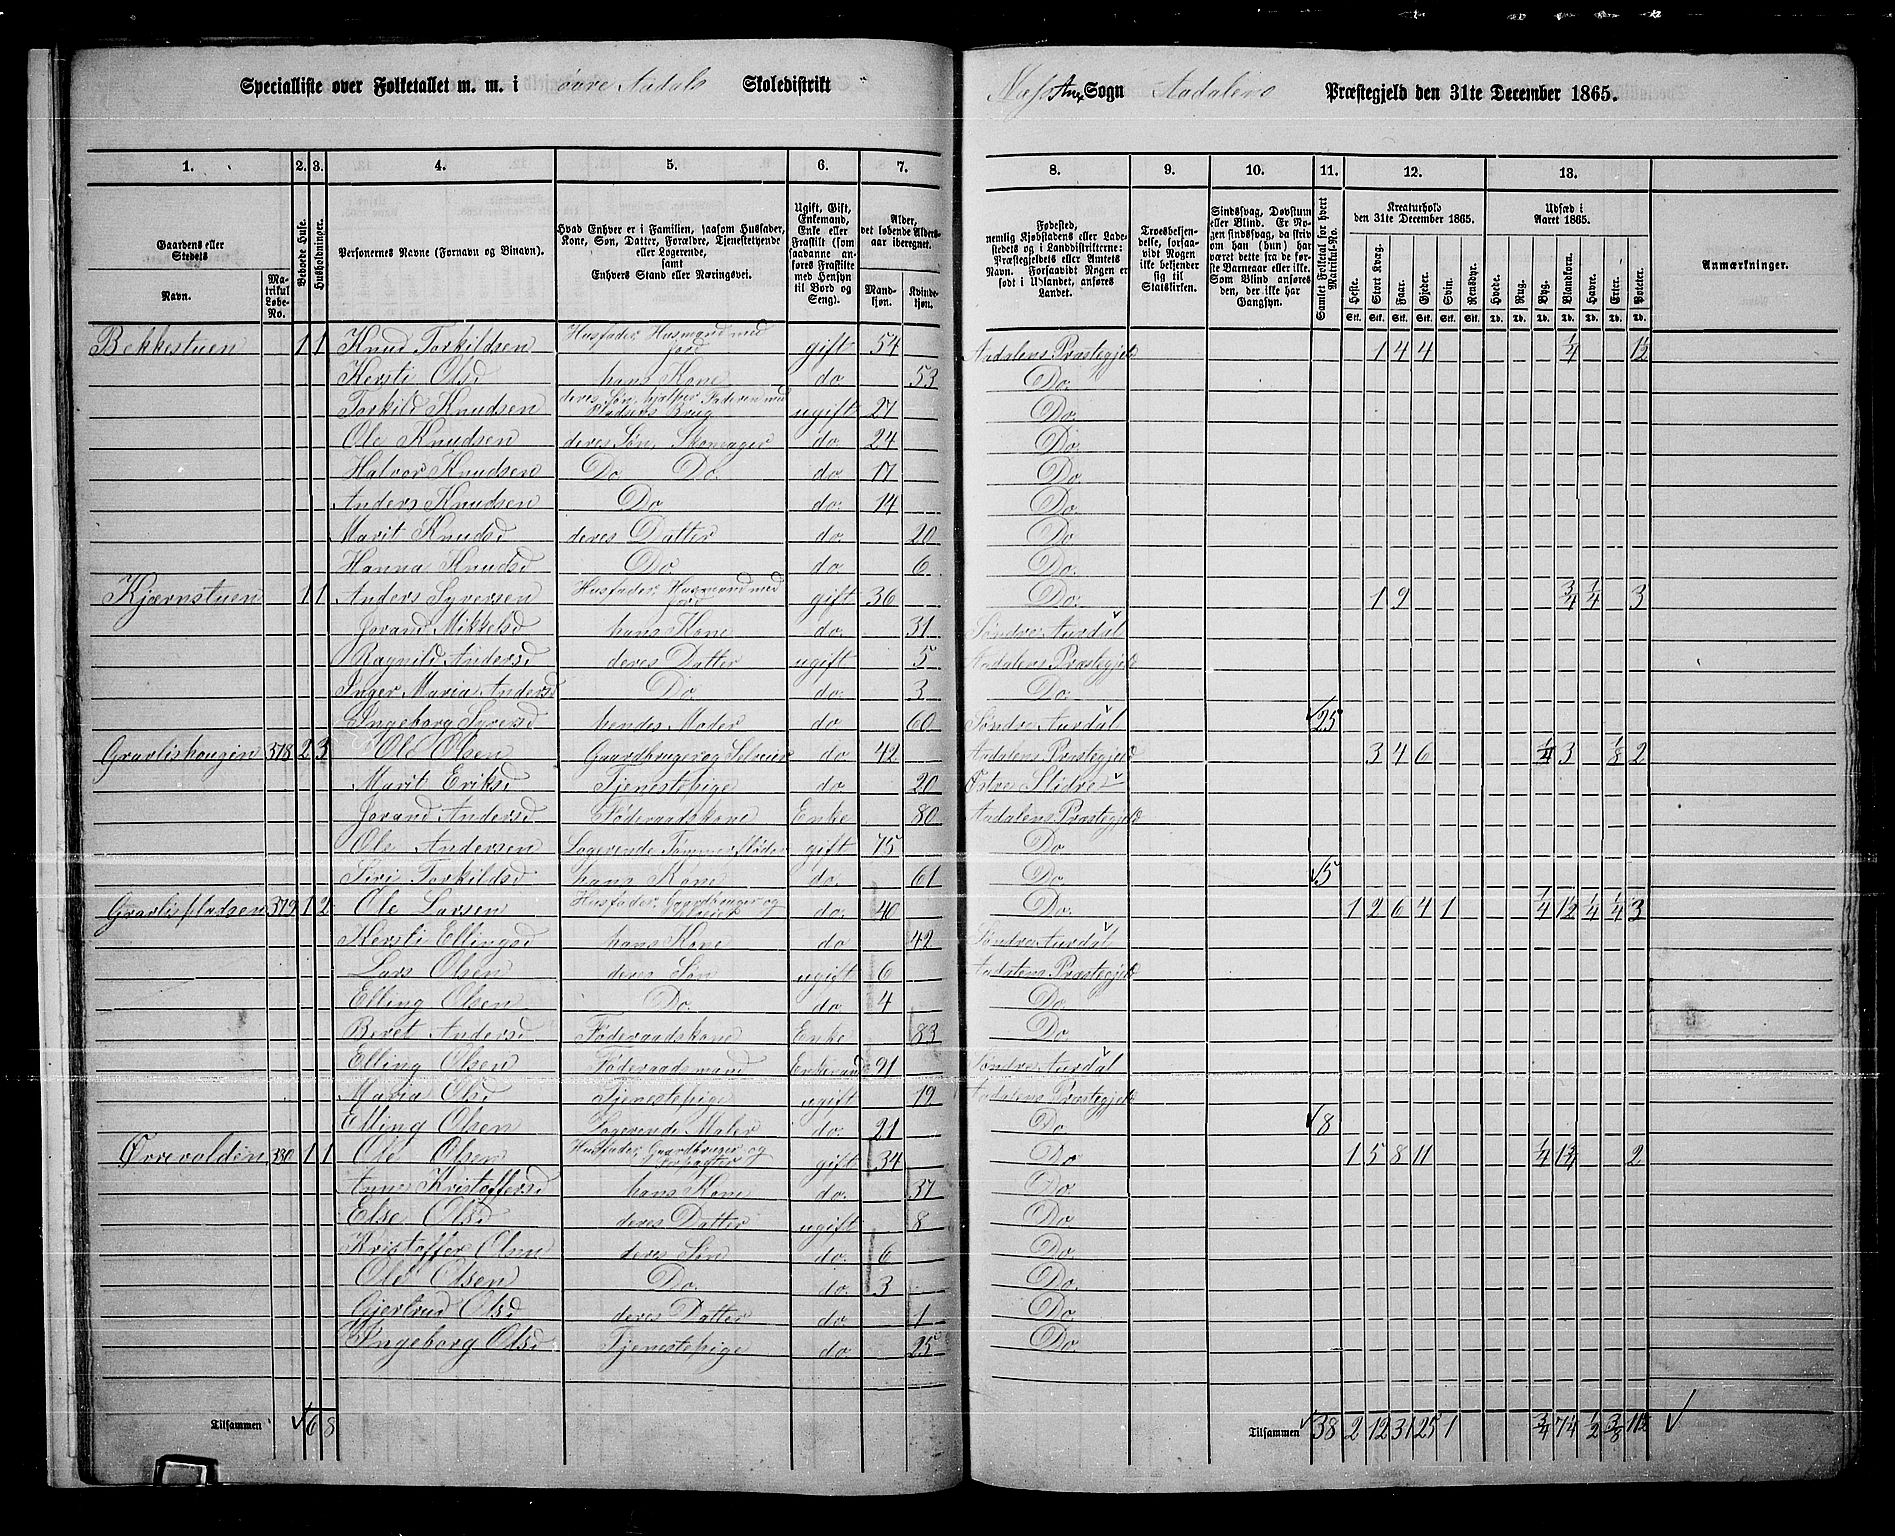 Specialliste over Folketallet m. m. i øvre Aadals Skoledistrikt
Næs Anx Sogn Aadalens Præstegjeld den 31te December 1865.
1. 2. 3. 4. 5. 6. 7. 8. 9. 10. 11. 12. 13.
Gaardens eller Stedets
Navn. Matrikul Løbe-No.
Beboede Huse.
Husholdninger.
Personernes Navne (Fornavn og Binavn).
Hvad Enhver er i Familien, saasom Husfader, Kone, Søn, Datter, Forældre, Tjenestetyende eller Logerende, samt Enhvers Stand eller Næringsvei.
Ugift, Gift, Enkemand, Enke eller Fraskilt (som saadanne anføres Fraskilte med Hensyn til Bord og Seng).
Alder, det løbende Aldersaar iberegnet.
Mandkjøn. Kvindekjøn.
Fødested, nemlig Kjøbstadens eller Ladestedets og i Landdistrikterne: Præstegjeldets eller Amtets Navn. Forsaavidt Nogen er født i Udlandet, anføres Landet.
Troesbekjendelse, forsaavidt Nogen ikke bekjender sig til Statskirken.
Sindssvag, Døvstum eller Blind. Er Nogen sindssvag, da skriv om han (hun) har været dette fra de første Barneaar eller ikke. Som Blind ansøres den, der ikke har Gangsyn.
Samlet Folketal for hvert Matrikul-No.
Kreaturhold den 31te December 1865.
Heste. Stort Kvæg. Faar. Gjeder. Svin. Rensdyr.
Stk. Stk. Stk. Stk. Stk. Stk.
Udsæd i Aaret 1865.
Hvede. Rug. Byg. Blandkorn. Havre. Erter. Poteter.
Td. Td. Td. Td. Td. Td. Td.
Anmærkninger.
Bekkestuen 1 1 Knud Torkildsen Husfader, Husmand med Jord gift 54 Aadalens Præstegjeld 1 4 4 1/4 1½
Kersti Olsd hans Kone do 53 Do.
Torkild Knudsen deres Søn, hjælper Faderen med Pladsens Brug ugift 27 Do.
Ole Knudsen deres Søn, Skomager do. 24 Do.
Halvor Knudsen Do Do. do. 17 Do
Anders Knudsen Do do. 14 Do
Marit Knudsd deres Datter do. 20 Do.
Hanna Knudsd Do. do. 6 Do.
Kjærnstuen 1 1 Anders Syversen Husfader, Husmand med Jord gift 36 Do. 1 9 3/4 1/4 3
Jorand Mikkelsd hans Kone do. 31 Søndre Aurdal
Ragnild Andersd deres Datter ugift 5 Aadalens Præstegjeld
Inger Maria Andersd Do. do. 3 Do.
Ingeborg Syversd hendes Moder do 60 Søndre Aurdal 25
Gravlishaugen 378 2 3 Ole Olsen Gaardbruger og Selveier do. 42 Aadalens Præstegjeld 3 4 6 1/4 3 1/8 2
Marit Eriksd Tjenestepige do. 20 Østre Slidre
Jorand Andersd Føderaadskone Enke 80 Aadalens Præstegjeld
Ole Andersen Logerende Tømmerfløder gift 75 Do.
Siri Torkildsd hans Kone do. 61 Do. 5
Gravlispladsen 379 1 2 Ole Larsen Husfader, Gaardbruger og Selveier do. 40 Do. 1 2 6 4 1 1/4 1½ 1/4 1/4 3
Kersti Ellingsd hans Kone do 42 Søndre Aurdal
Lars Olsen deres Søn ugift 6 Aadalens Præstegjeld
Elling Olsen Do. do. 4 Do.
Beret Andersd Føderaadskone Enke 83 Do.
Elling Olsen Føderaadsmand Enkemand 91 Søndre Aurdal
Maria Olsd Tjenestepige ugift 19 Aadalens Præstegjeld
Elling Olsen Logerende Maler do. 21 Do. 8
Ørrevolden 380 1 1 Ole Olsen Husfader, Gaardbruger og Forpagter gift 34 Do. 1 5 8 11 1/4 1¼ 2
Agnes Kristoffersd hans Kone do. 37 Do.
Else Olsd deres Datter ugift 8 Do
Kristoffer Olsen deres Søn do. 6 Do.
Ole Olsen Do. do. 3 Do.
Gjertrud Olsd deres Datter do 1 Do
Ingeborg Olsd Tjenestepige do. 25 Do.
Tilsammen 6 8 Tilsammen 38 2 12 31 25 1 3/4 7¼ 1/2 3/8 11½